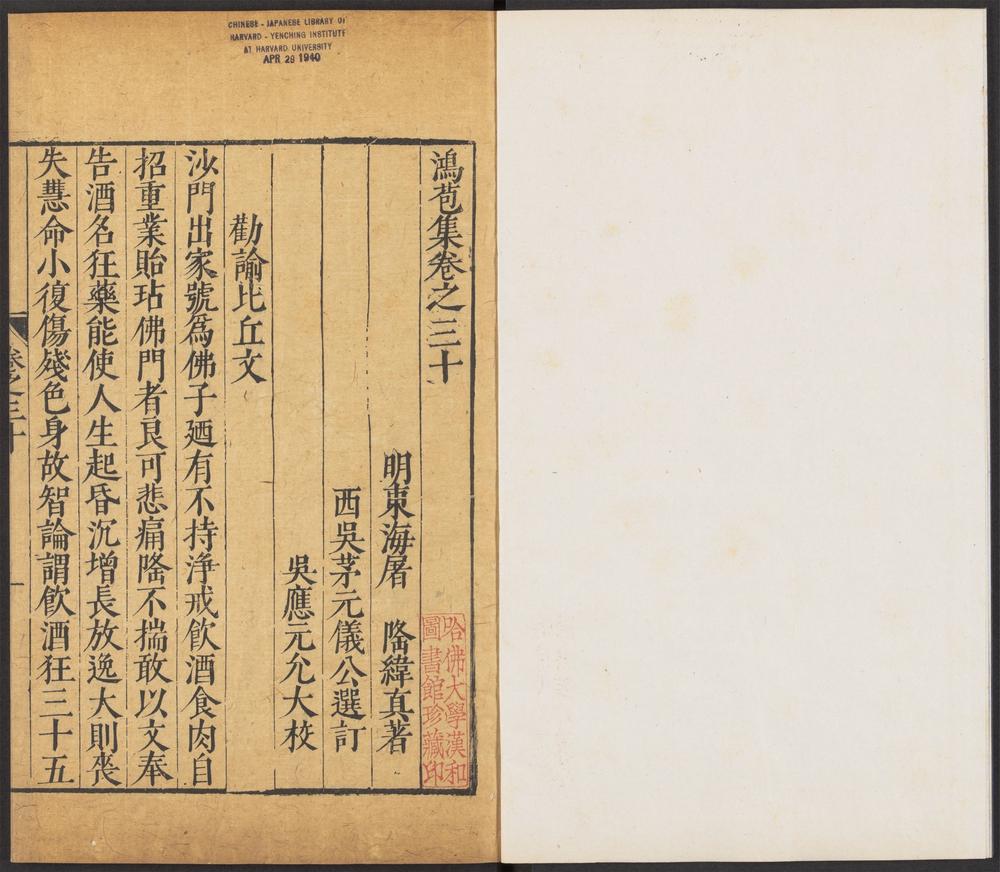 CHINESE - JAPANESE LIBRARY OF
HARVARD - YENCHING INSTITUTE
AT HARVARD UNIVERSITY
APR 29 1940
鴻苞集卷之三十
明東海屠　隆緯真著
西吳茅元儀公選訂
吳應元允大校
勸諭比丘文
沙門出家號爲佛子廼有不持淨戒飲酒食肉自
招重業貽玷佛門者良可悲痛隆不揣敢以文奉
告酒名狂藥能使人生起昏沉增長放逸大則喪
失慧命小復傷殘色身故智論謂飲酒狂三十五
卷之三十
一
哈佛大學漢和
圖書館珍藏印